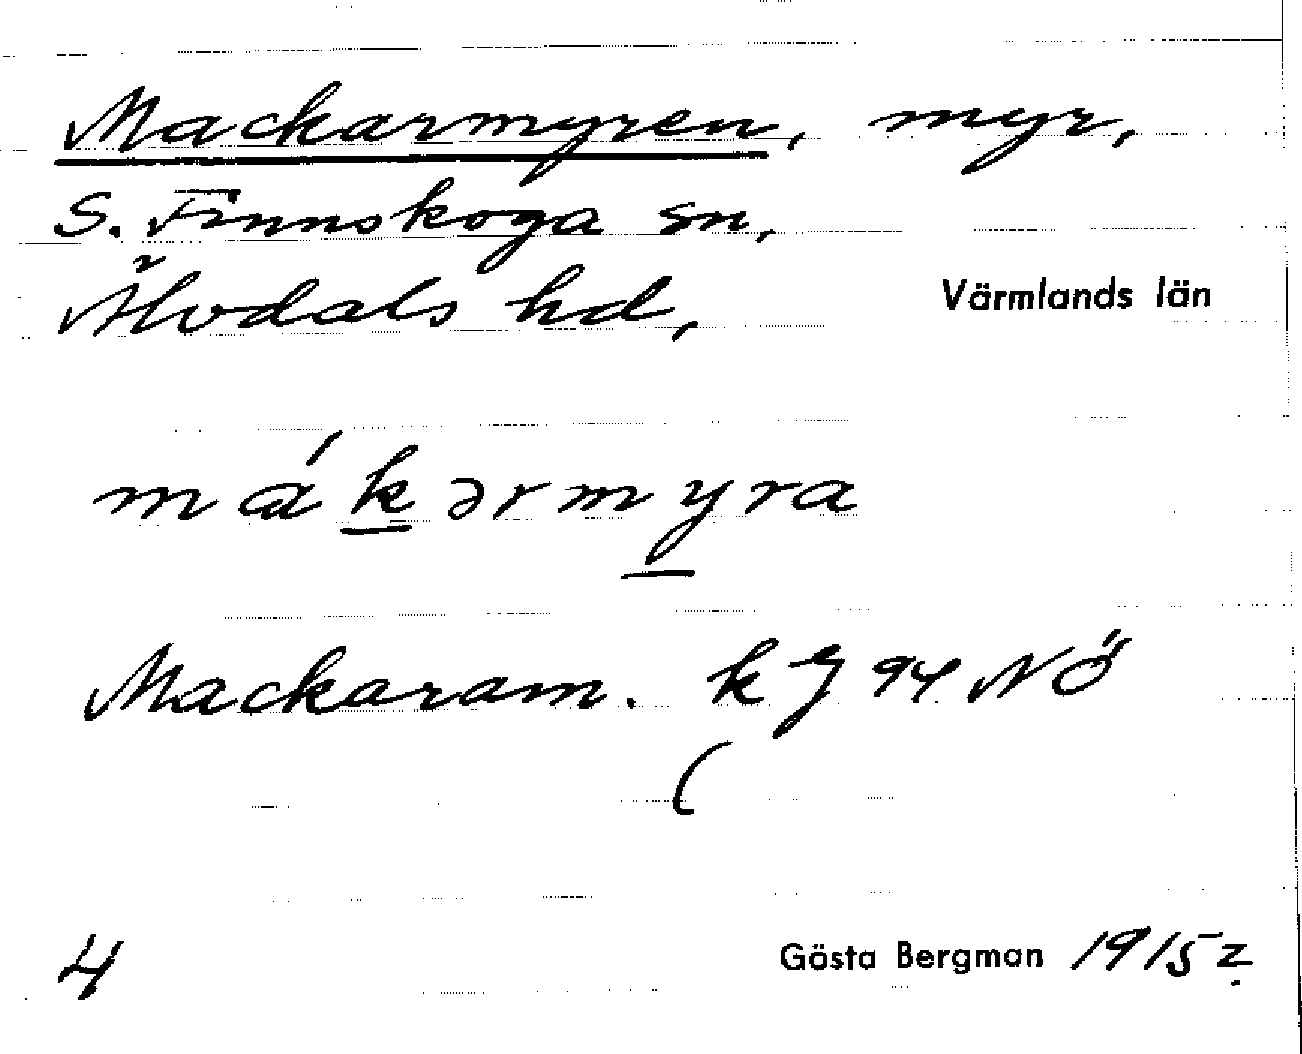 Mackarmyren, myr,
S. Finnskoga sn,
Älvdals hd, Värmlands län
mákərmyra
Mackaram. kJ 94 NÖ
(
4 Gösta Bergman 1915